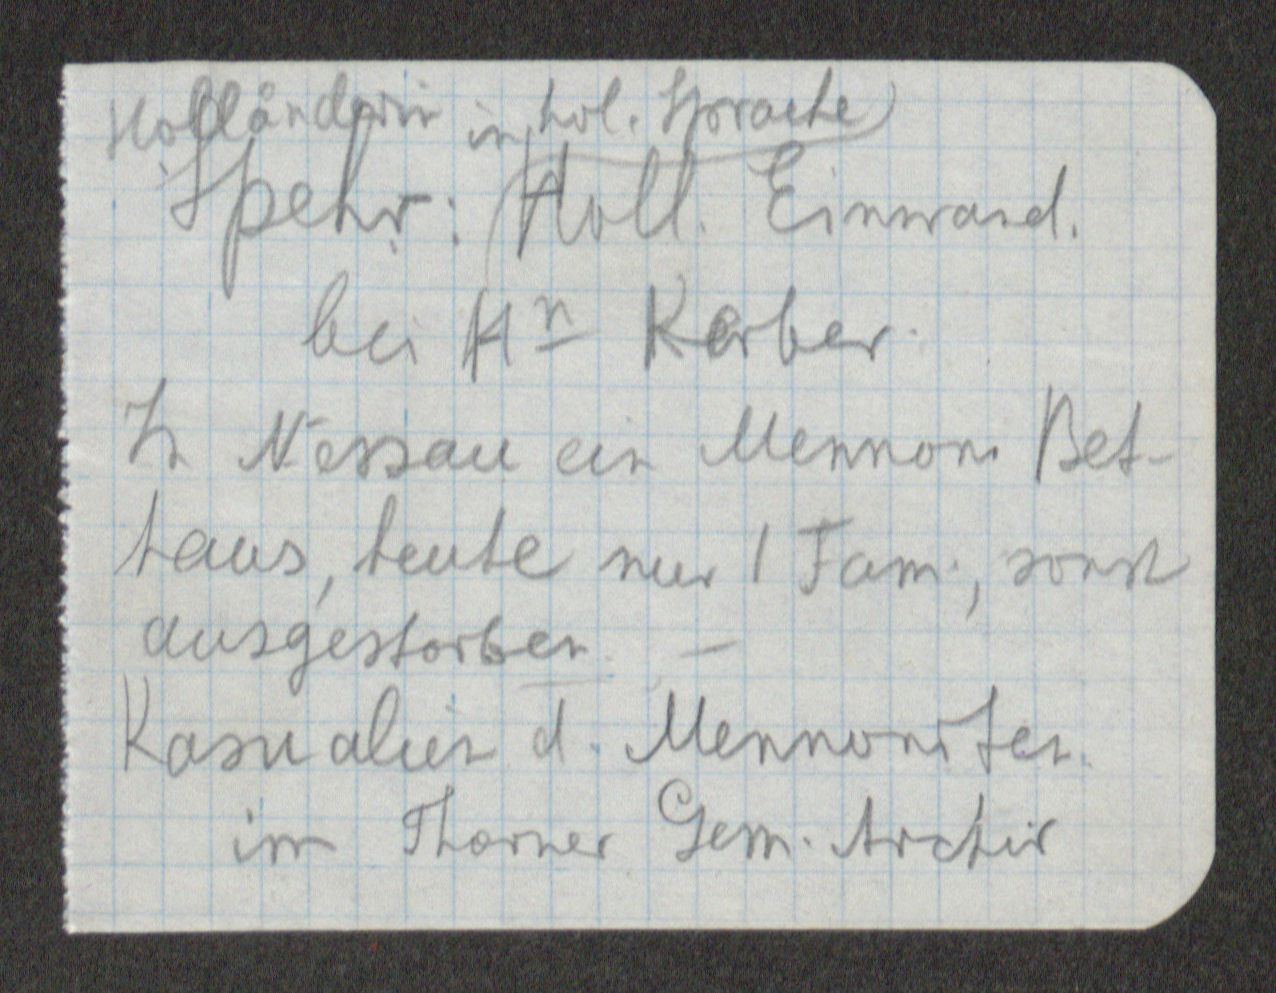 Holländerin in hol. Sprache
Spehr: Holl. Einwand.
bei Hn Kerber.
In Nessau ein Mennon. Bet-
haus, heute nur 1 Fam., sonst
ausgestorben. –
Kasualien d. Mennoniten
im Thorner Gem. Archiv